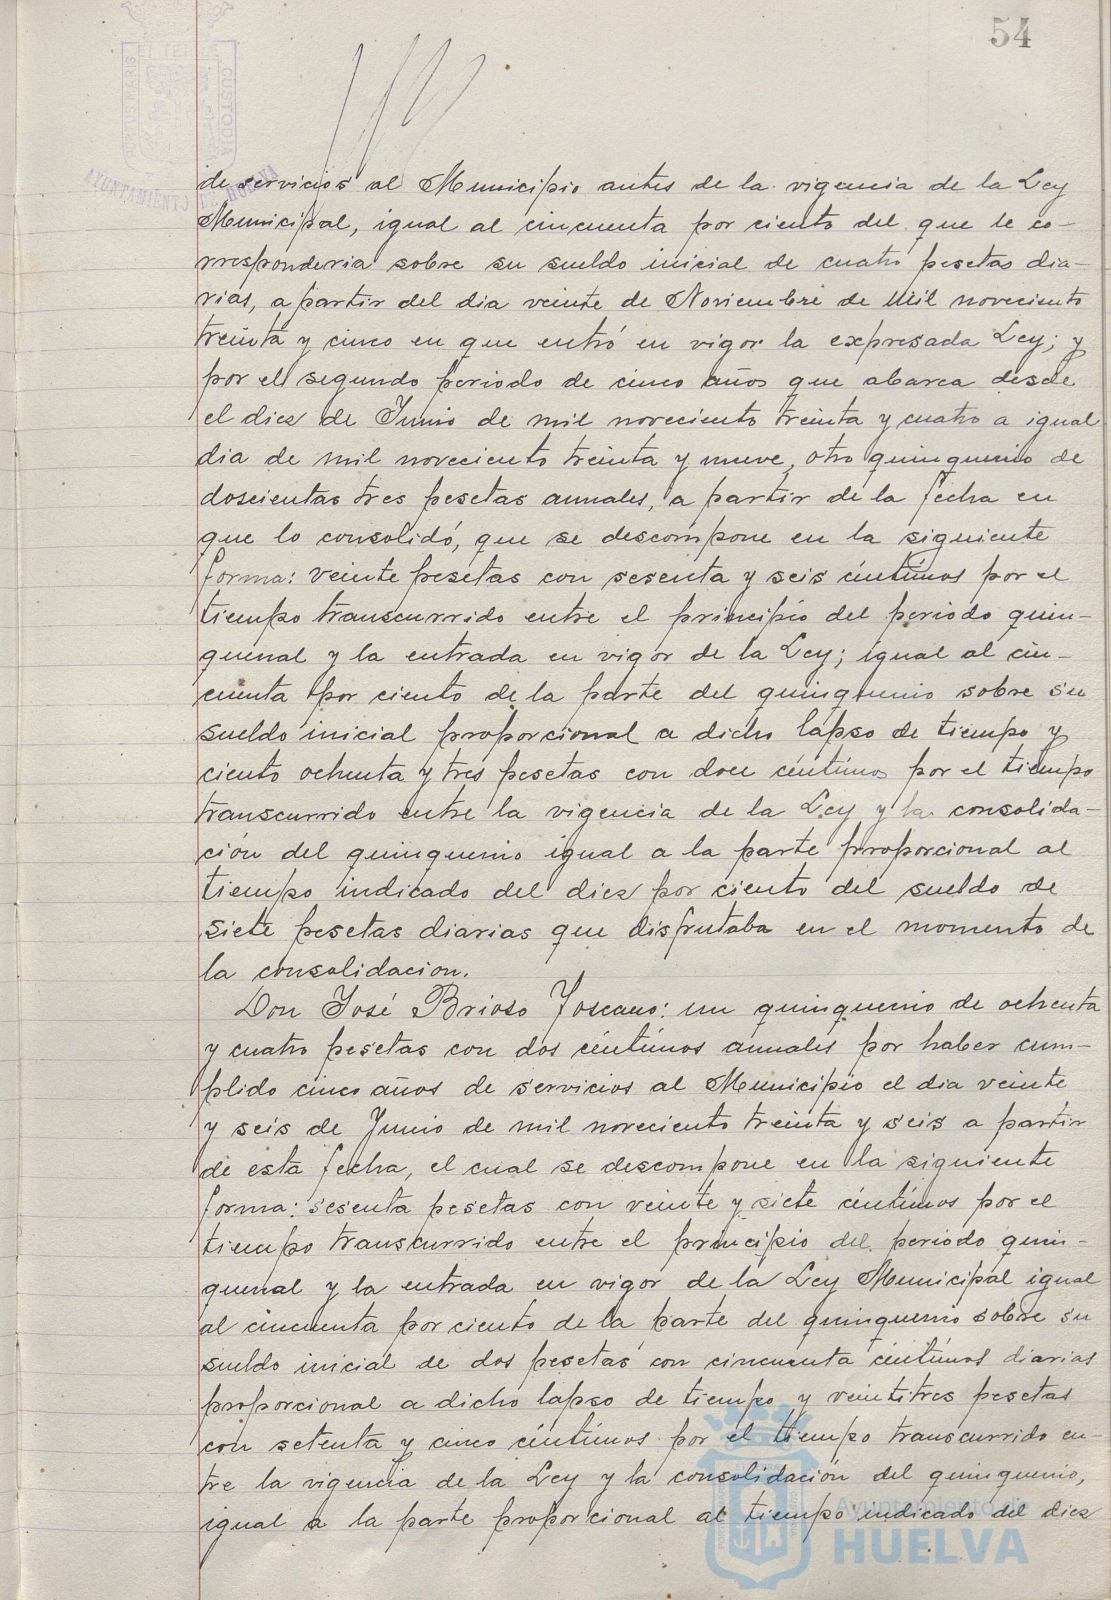 54
PORTUS MARIS ET TERRAE CUSTODIA
AYUNTAMIENTO DE HUELVA
de servicios al Municipio antes de la vigencia de la Ley
Municipal, igual al cincuenta por ciento del que le co-
rresponderia sobre su sueldo inicial de cuatro pesetas dia-
rias, a partir del dia veinte de Noviembre de mil noveciento
treinta y cinco en que entró en vigor la expresada Ley; y
por el segundo periodo de cinco años que abarca desde
el diez de Junio de mil noveciento treinta y cuatro a igual
dia de mil noveciento treinta y nueve, otro quinquenio de
doscientas tres pesetas annales, a partir de la fecha en
que lo consolidó, que se descompone en la siguiente
forma: veinte pesetas con sesenta y seis céntimos por el
tiempo transcurrido entre el principio del periodo quin-
quenal y la entrada en vigor de la Ley; igual al cin-
cuenta por ciento de la parte del quinquenio sobre su
sueldo inicial proporcional a dicho lapso de tiempo y
ciento ochenta y tres pesetas con doce céntimos por el tiempo
transcurrido entre la vigencia de la Ley y la consolida-
ción del quinquenio igual a la parte proporcional al
tiempo indicado del diez por ciento del sueldo de
siete pesetas diarias que disfrutaba en el momento de
la consolidacion.
Don José Brioso Toscano: un quinquenio de ochenta
y cuatro pesetas con dos céntimos annales por haber cum-
plido cinco años de servicios al Municipio el dia veinte
y seis de Junio de mil noveciento treinta y seis a partir
de esta fecha, el cual se descompone en la siguiente
forma: sesenta pesetas con veinte y siete céntimos por el
tiempo transcurrido entre el principio del periodo quin-
quenal y la entrada en vigor de la Ley Municipal igual
al cincuenta por ciento de la parte del quinquenio sobre su
sueldo inicial de dos pesetas con cincuenta céntimos diarias
proporcional a dicho lapso de tiempo y veintitres pesetas
con setenta y cinco céntimos por el tiempo transcurrido en-
tre la vigencia de la Ley y la consolidación del quinquenio,
igual a la parte proporcional al tiempo indicado del diez
Ayuntamiento de
HUELVA